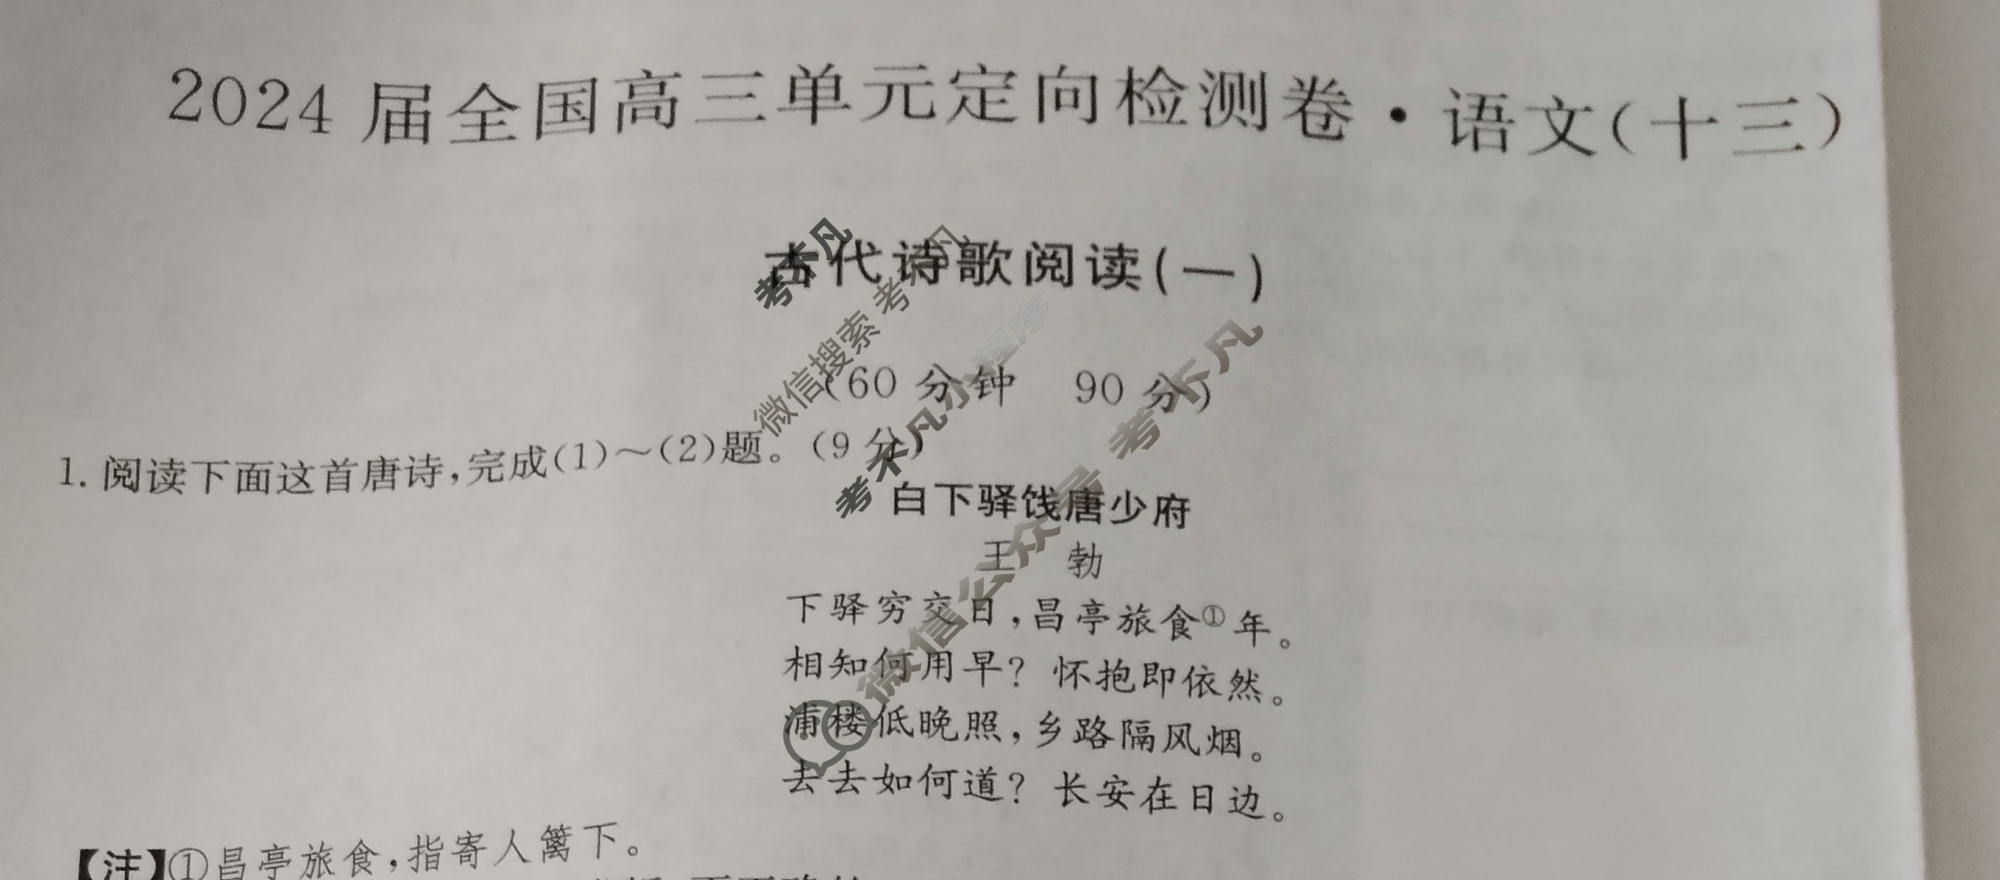 2024届全国高三单元定向检测卷·语文(十三)
古代诗歌阅读(一)
(60分钟 90分)
1. 阅读下面这首唐诗,完成(1)～(2)题。(9分)
白下驿饯唐少府
王 勃
下驿穷交日,昌亭旅食①年。
相知何用早? 怀抱即依然。
浦楼低晚照,乡路隔风烟。
去去如何道? 长安在日边。
【注】①昌亭旅食,指寄人篱下。
考不凡
微信搜索 考不凡
考不凡小程序
微信公众号 考不凡